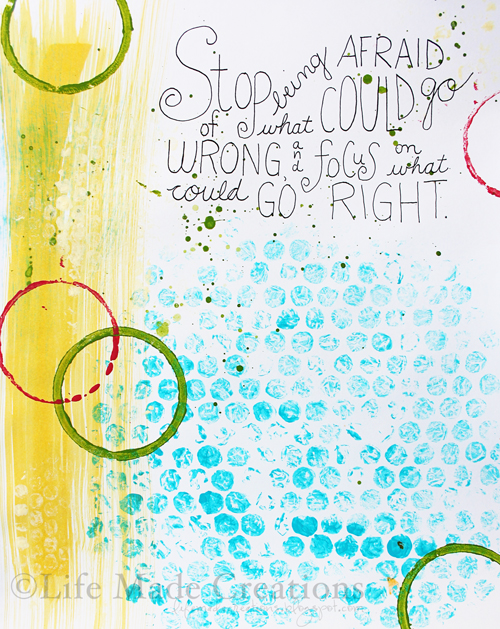 Stop being AFRAID
of what COULD go
WRONG, and focus on what
could GO RIGHT.
©Life Made Creations